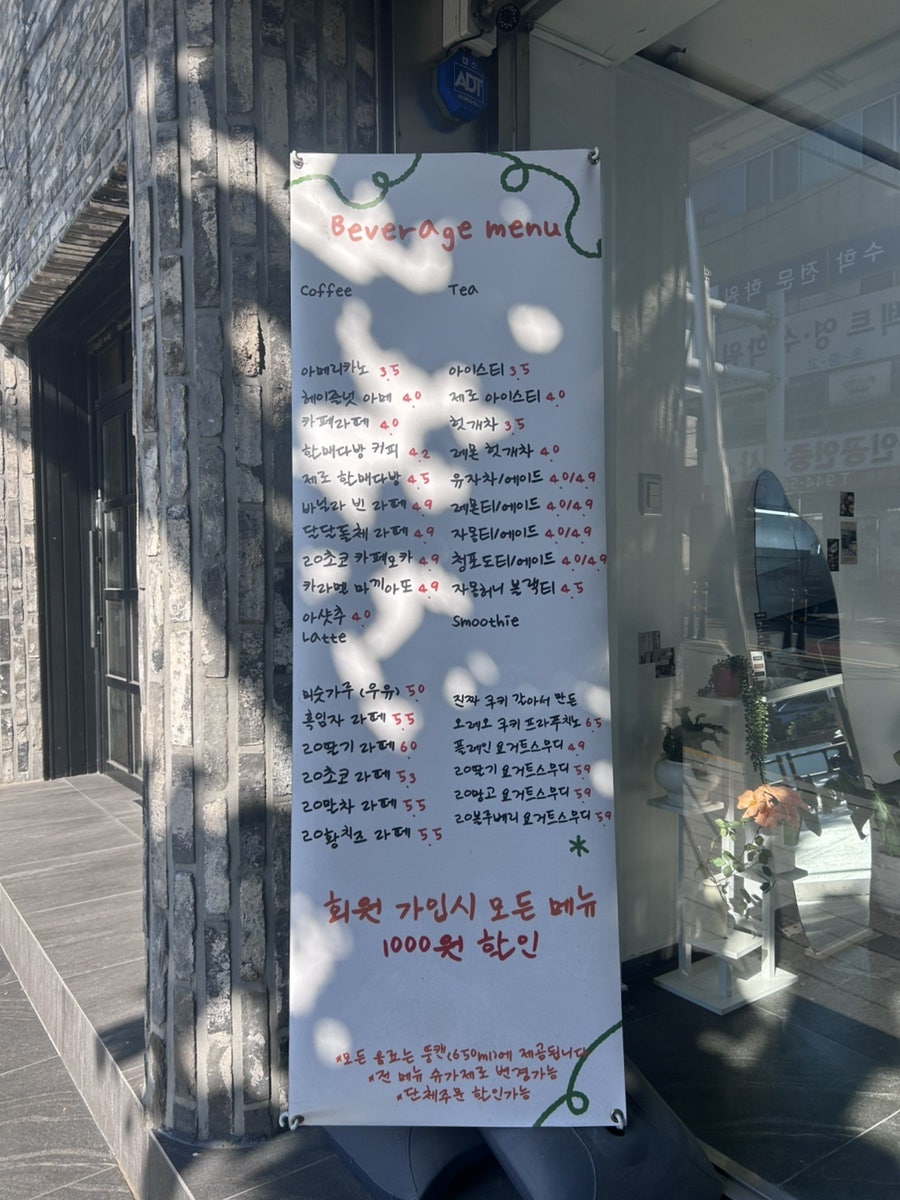 캡스
ADT
Beverage menu
Coffee
아메리카노 3.5
헤이즐넛 아메 4.0
카페라떼 4.0
할매다방 커피 4.2
제로 할매다방 4.5
바닐라 빈 라떼 4.9
단단돌체 라떼 4.9
20초코 카페모카 4.9
카라멜 마끼아또 4.9
아샷추 4.0
Latte
미숫가루 (우유) 5.0
흑임자 라떼 5.5
20딸기 라떼 6.0
20초코 라떼 5.3
20말차 라떼 5.5
20황치즈 라떼 5.5
Tea
아이스티 3.5
제로 아이스티 4.0
헛개차 3.5
레몬 헛개차 4.0
유자차/에이드 4.0/4.9
레몬티/에이드 4.0/4.9
자몽티/에이드 4.0/4.9
청포도티/에이드 4.0/4.9
자몽허니 블랙티 4.5
Smoothie
진짜 쿠키 갈아서 만든
오레오 쿠키 프라푸치노 6.5
플레인 요거트스무디 4.9
20딸기 요거트스무디 5.9
20망고 요거트스무디 5.9
20블루베리 요거트스무디 5.9
*
회원 가입시 모든 메뉴
1000원 할인
*모든 음료는 뚱캔(650ml)에 제공됩니다
*전 메뉴 슈가제로 변경가능
*단체주문 할인가능
수학 전문 학원
영·수학원